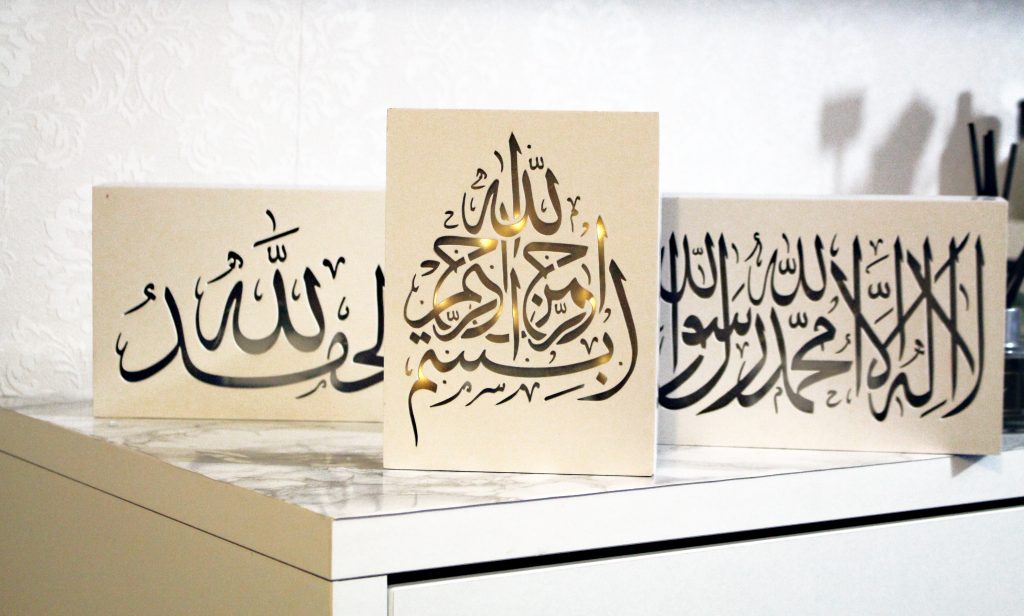 لا إله إلا الله محمد رسول الله
بسم الله الرحمن الرحيم
الحمد لله